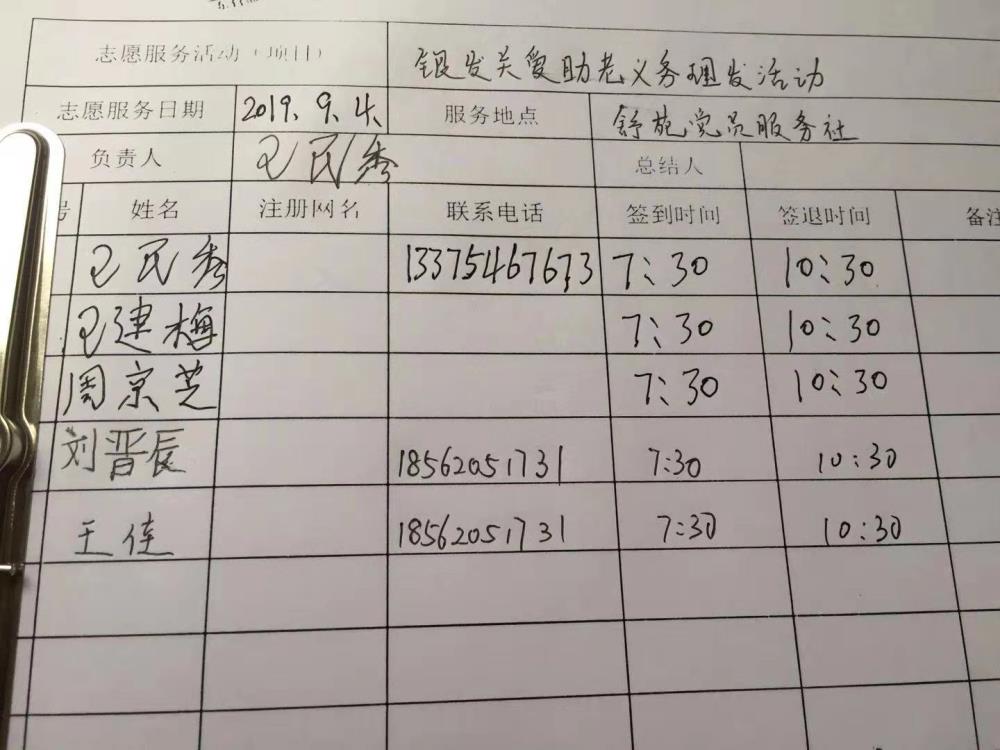 志愿服务活动（项目） 银发关爱助老义务理发活动
志愿服务日期 2019.9.4. 服务地点 舒苑党员服务社
负责人 王民秀 总结人
号 姓名 注册网名 联系电话 签到时间 签退时间 备注
王民秀 13375467673 7:30 10:30
王建梅 7:30 10:30
周京芝 7:30 10:30
刘晋辰 18562051731 7:30 10:30
王佳 18562051731 7:30 10:30